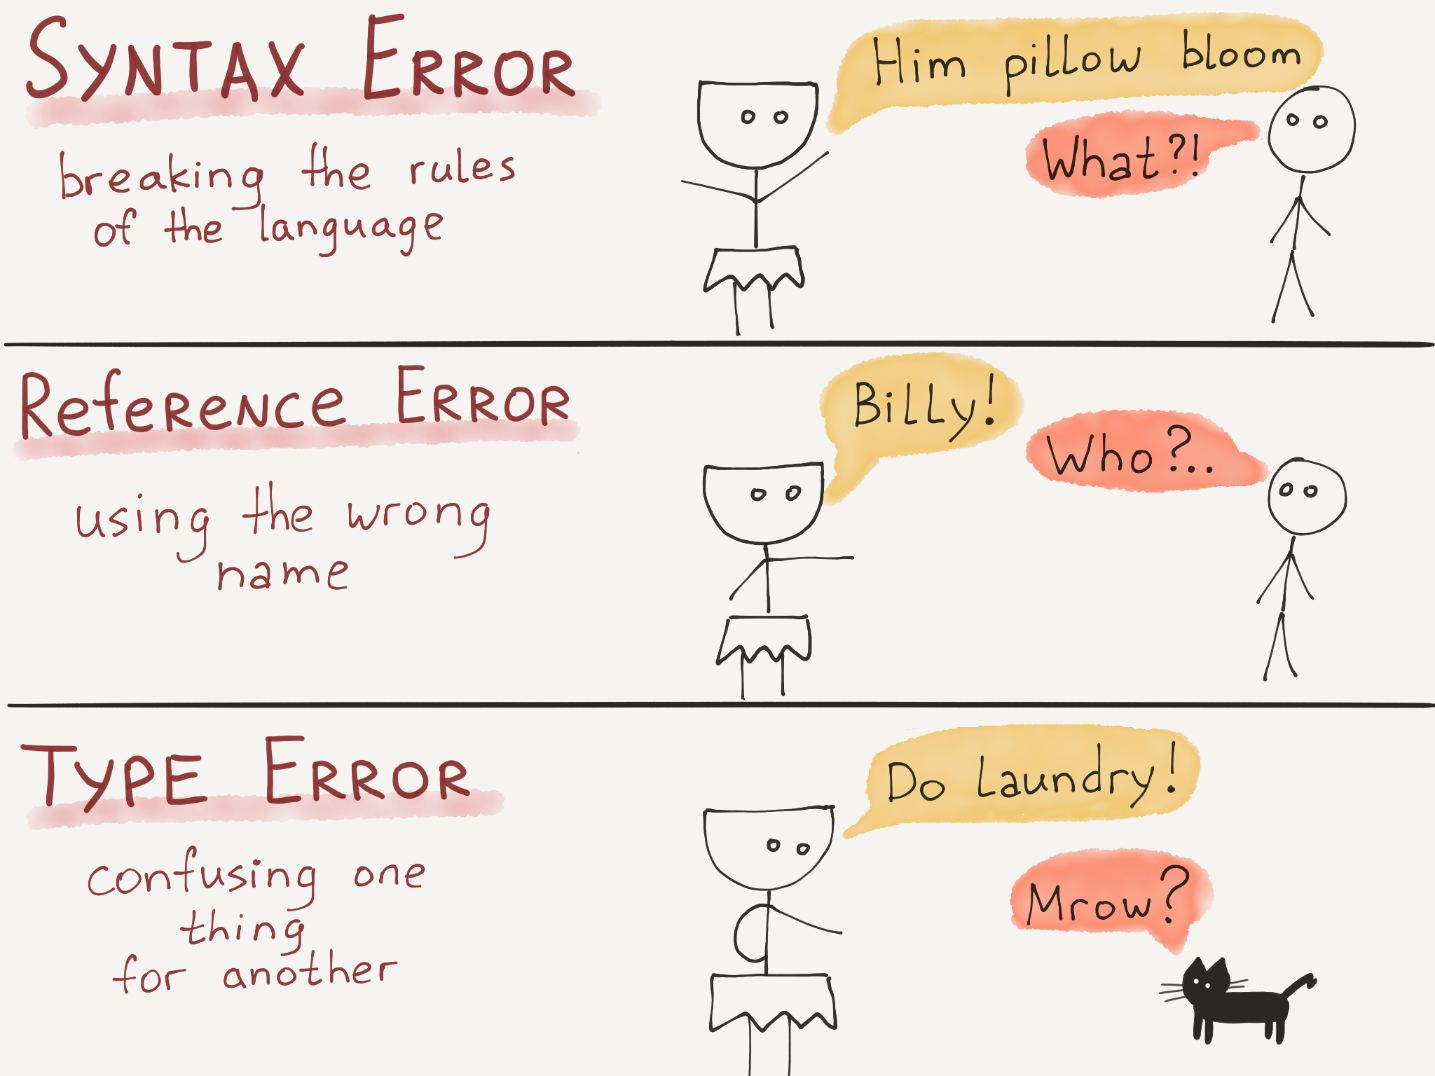 SYNTAX ERROR
breaking the rules
of the language
Him pillow bloom
What?!
Reference ERROR
using the wrong
name
Billy!
Who?..
TYPE ERROR
confusing one
thing
for another
Do Laundry!
Mrow?